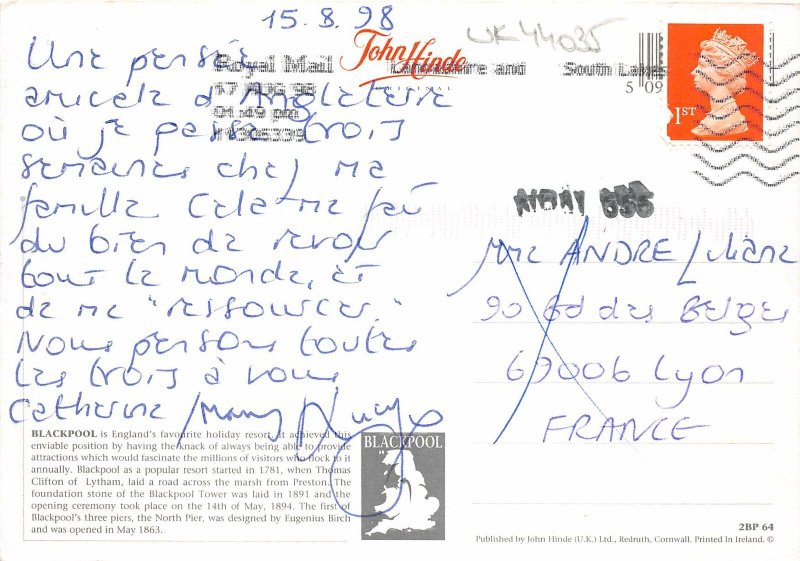 15.8.98
Une pensée
amicale d'Angleterre
où je passe trois
semaines chez ma
famille. Cela me fait
du bien de revoir
tout le monde, et
de me "ressourcer."
Nous pensons toutes
les trois à vous
Catherine / Mary
BLACKPOOL is England's favourite holiday resort. It achieved this
enviable position by having the knack of always being able to provide
attractions which would fascinate the millions of visitors who flock to it
annually. Blackpool as a popular resort started in 1781, when Thomas
Clifton of Lytham, laid a road across the marsh from Preston. The
foundation stone of the Blackpool Tower was laid in 1891 and the
opening ceremony took place on the 14th of May, 1894. The first of
Blackpool's three piers, the North Pier, was designed by Eugenius Birch
and was opened in May 1863.
BLACKPOOL
John Hinde
ORIGINAL
UK44035
Royal Mail Lancashire and South Lakes
5 09
1ST
Mme ANDRE / Liliane
90 Bd des Belges
69006 Lyon
FRANCE
2BP 64
Published by John Hinde (U.K.) Ltd., Redruth, Cornwall. Printed In Ireland. ©